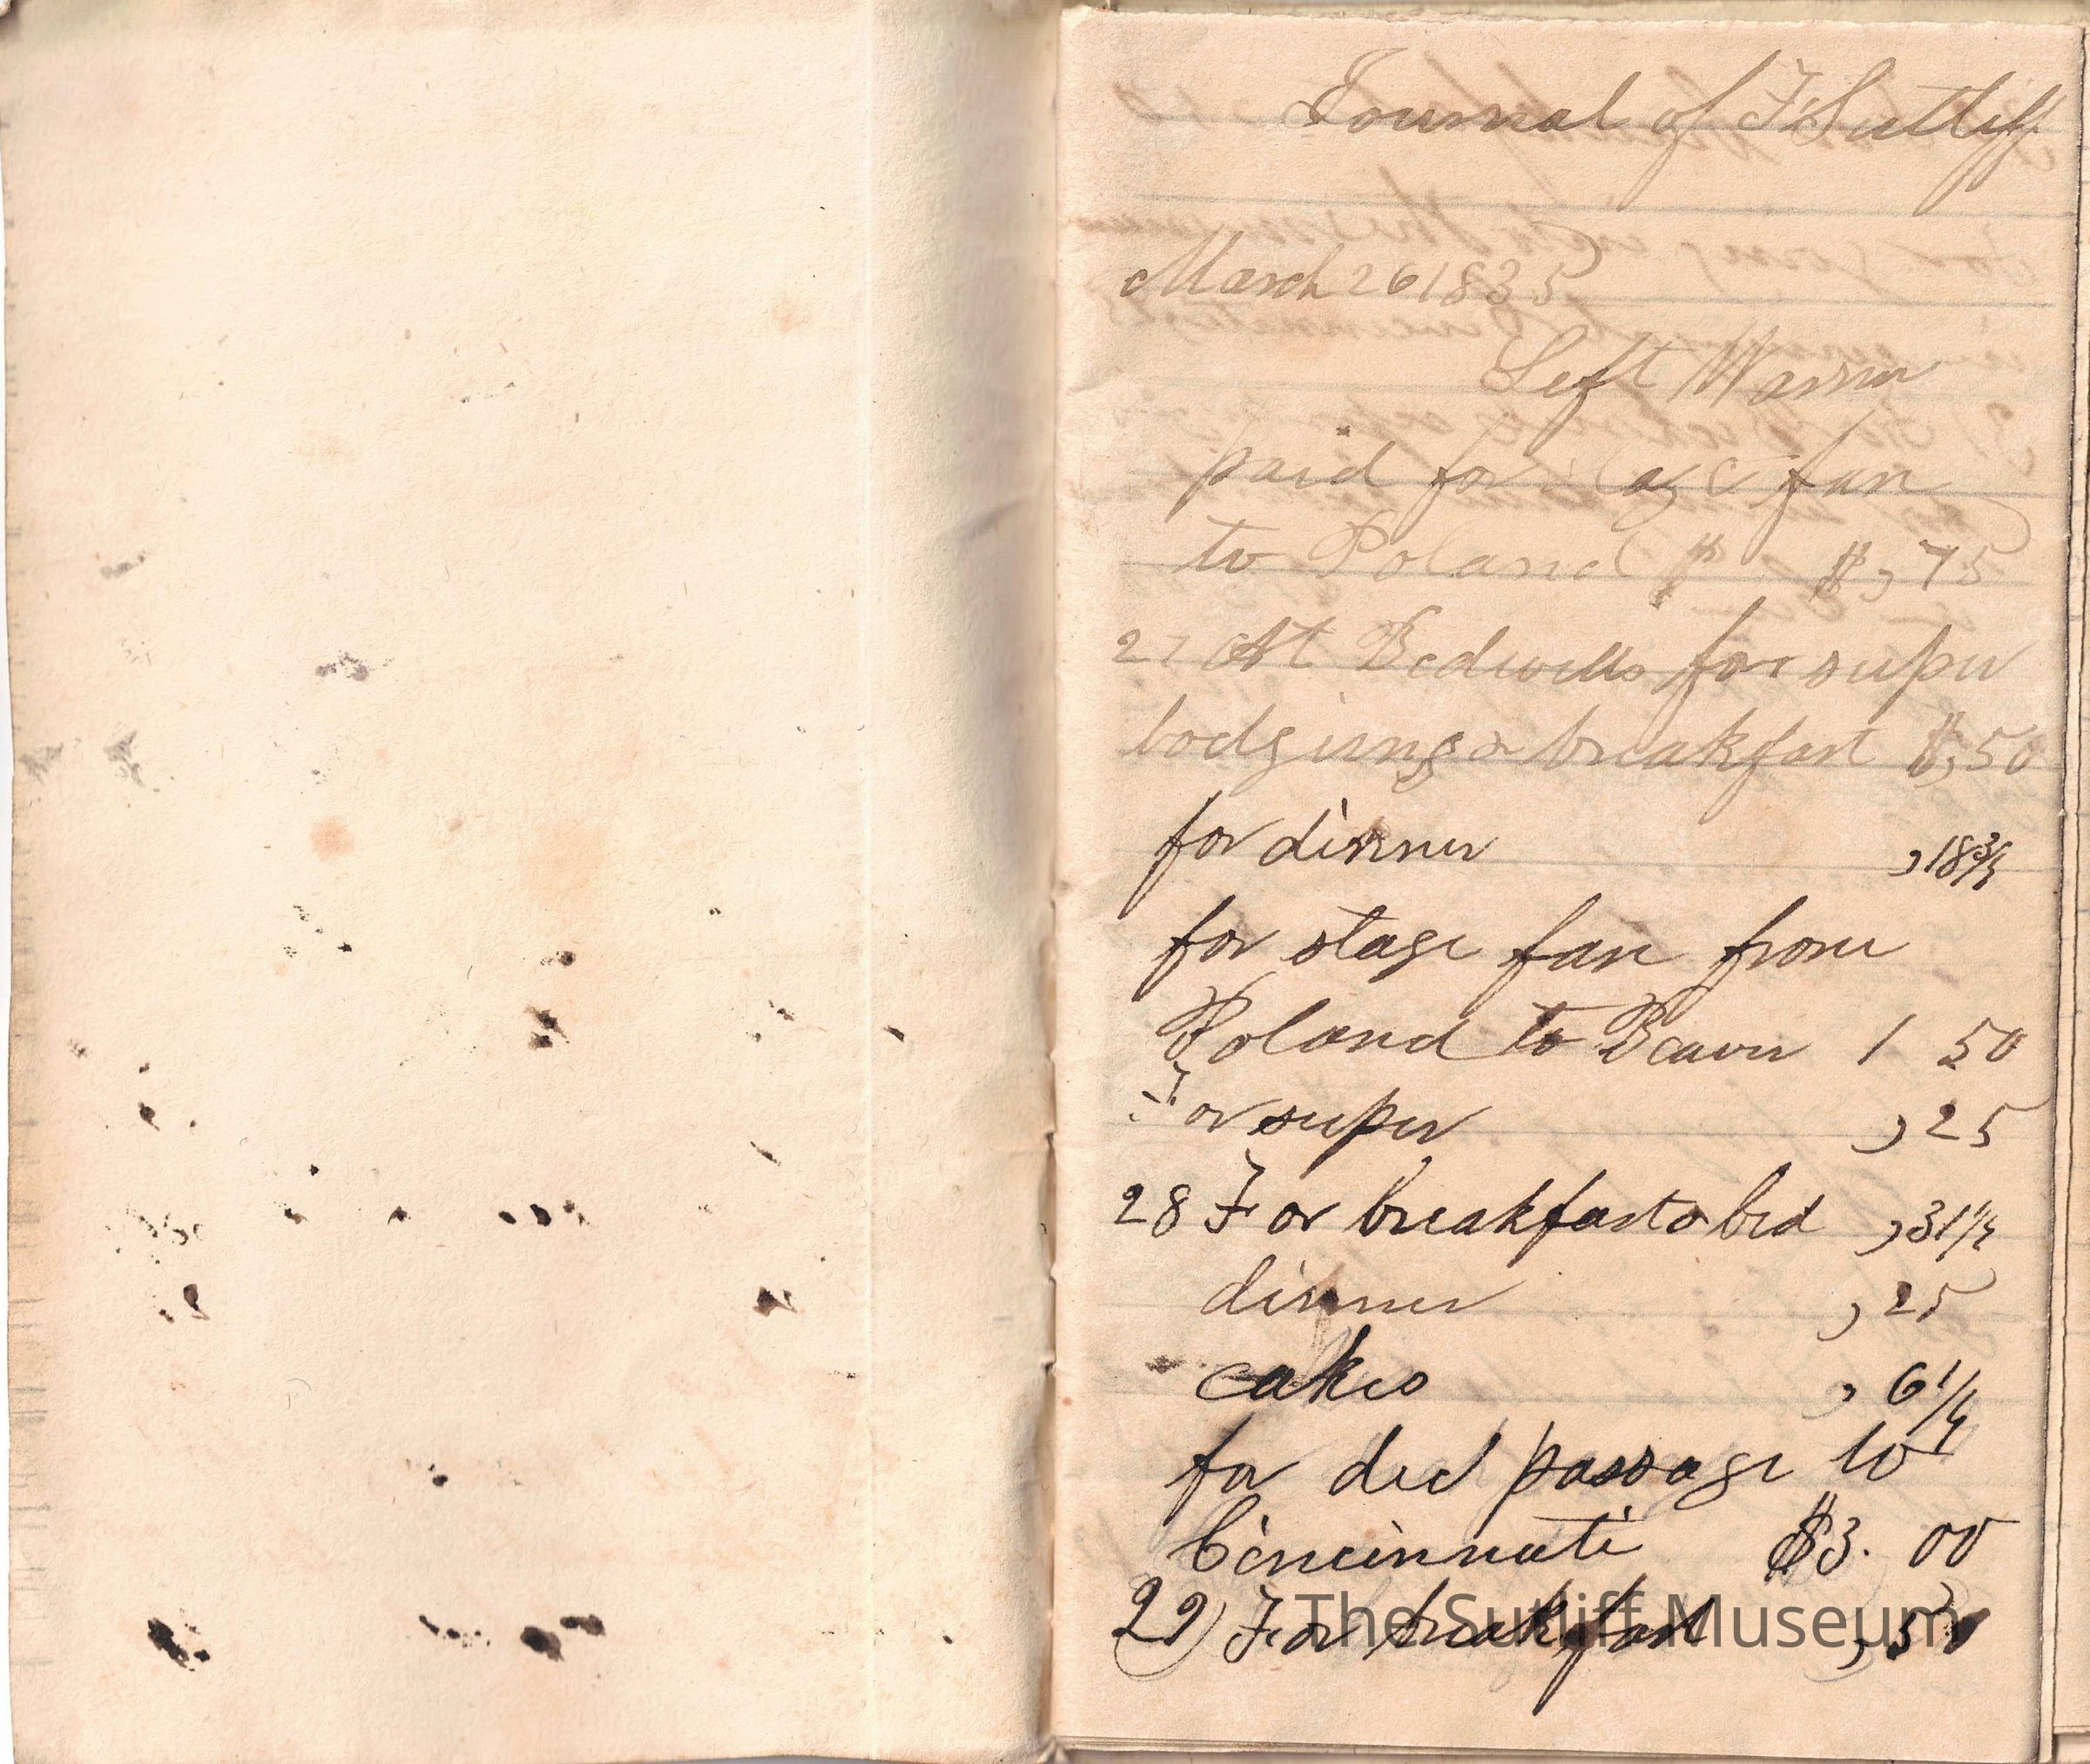 Journal of F Sutliff
March 26 1835
Left Warren
paid for stage fare
to Poland $ $,75
27 At Bedwells for super
lodgiung & breakfast $,50
for dinner ,18¾
for stage fare from
Poland to Beaver 1 50
For super ,25
28 For breakfast & bed ,31¼
dinner ,25
cakes ,6¼
for deck passage to
Cincinnati $3.00
29) For breakfast
The Sutliff Museum